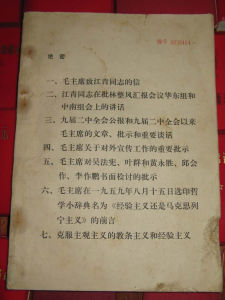 绝密
一、毛主席致江青同志的信
二、江青同志在批林整风汇报会议华东组和
中南组会上的讲话
三、九届二中全会公报和九届二中全会以来
毛主席的文章、批示和重要谈话
四、毛主席关于对外宣传工作的重要批示
五、毛主席对吴法宪、叶群和黄永胜、邱会
作、李作鹏书面检讨的批示
六、毛主席在一九五九年八月十五日选印哲
学小辞典名为《经验主义还是马克思列
宁主义》的前言
七、克服主观主义的教条主义和经验主义